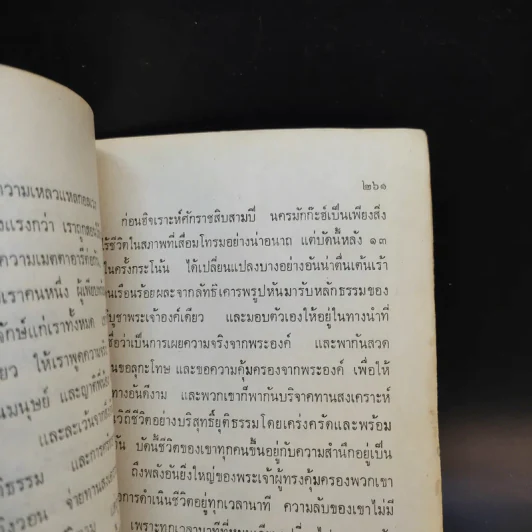 ความเหลวแหลก
งแรงกว่า เราถูก
ความเมตตาอารี
เราคนหนึ่ง
ักษ์แก่เราทั้งหมด
ให้เราพูดความ
นมนุษย์ และญาติ
และละเว้น
ธรรม
วิงวอน จ่ายทาน
๒๖๑
ก่อนฮิจเราะห์ศักราชสิบสามปี นครมักก๊ะฮ์เป็นเพียงสิ่ง
ไร้ชีวิตในสภาพที่เสื่อมโทรมอย่างน่าอนาถ แต่บัดนี้หลัง ๑๓
ในครั้งกระโน้น ได้เปลี่ยนแปลงบางอย่างอันน่าตื่นเต้นเร้า
นเรือนร้อยผละจากลัทธิเคารพรูปหันมารับหลักธรรมของ
บูชาพระเจ้าองค์เดียว และมอบตัวเองให้อยู่ในทางนำที่
ชื่อว่าเป็นการเผยความจริงจากพระองค์ และพากันสวด
นขอลุกะโทษ และขอความคุ้มครองจากพระองค์ เพื่อให้
ทางอันดีงาม และพวกเขาก็พากันบริจาคทานสงเคราะห์
วิถีชีวิตอย่างบริสุทธิ์ยุติธรรมโดยเคร่งครัดและพร้อม
ัน บัดนี้ชีวิตของเขาทุกคนขึ้นอยู่กับความสำนึกอยู่เป็น
ถึงพลังอันยิ่งใหญ่ของพระเจ้าผู้ทรงคุ้มครองพวกเขา
งการดำเนินชีวิตอยู่ทุกเวลานาที ความลับของเขาไม่มี
เพราะทุกเวลานาที